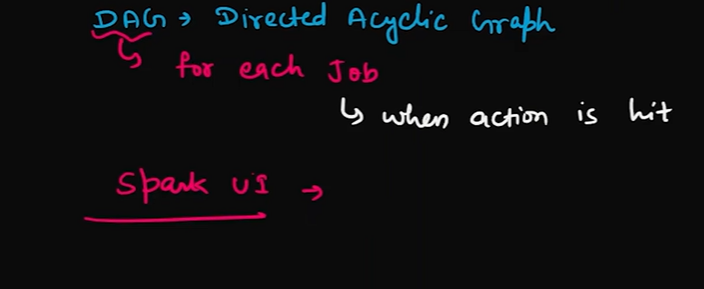 DAG → Directed Acyclic Graph
↳ for each Job
↳ when action is hit
Spark UI →